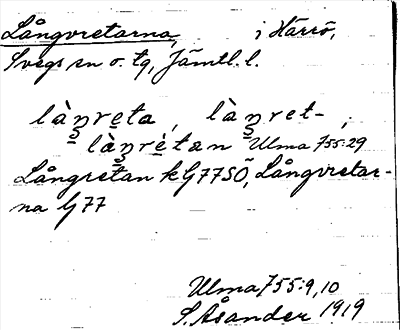 Långvretarna, i Härrö,
Svegs sn o. tg, Jämtl. l.
làŋreta, làŋret-,
làŋrètan Ulma 755:29
Långretan k G77SÖ, Långvretar-
na G77
Ulma 755:9,10
S. Åsander 1919